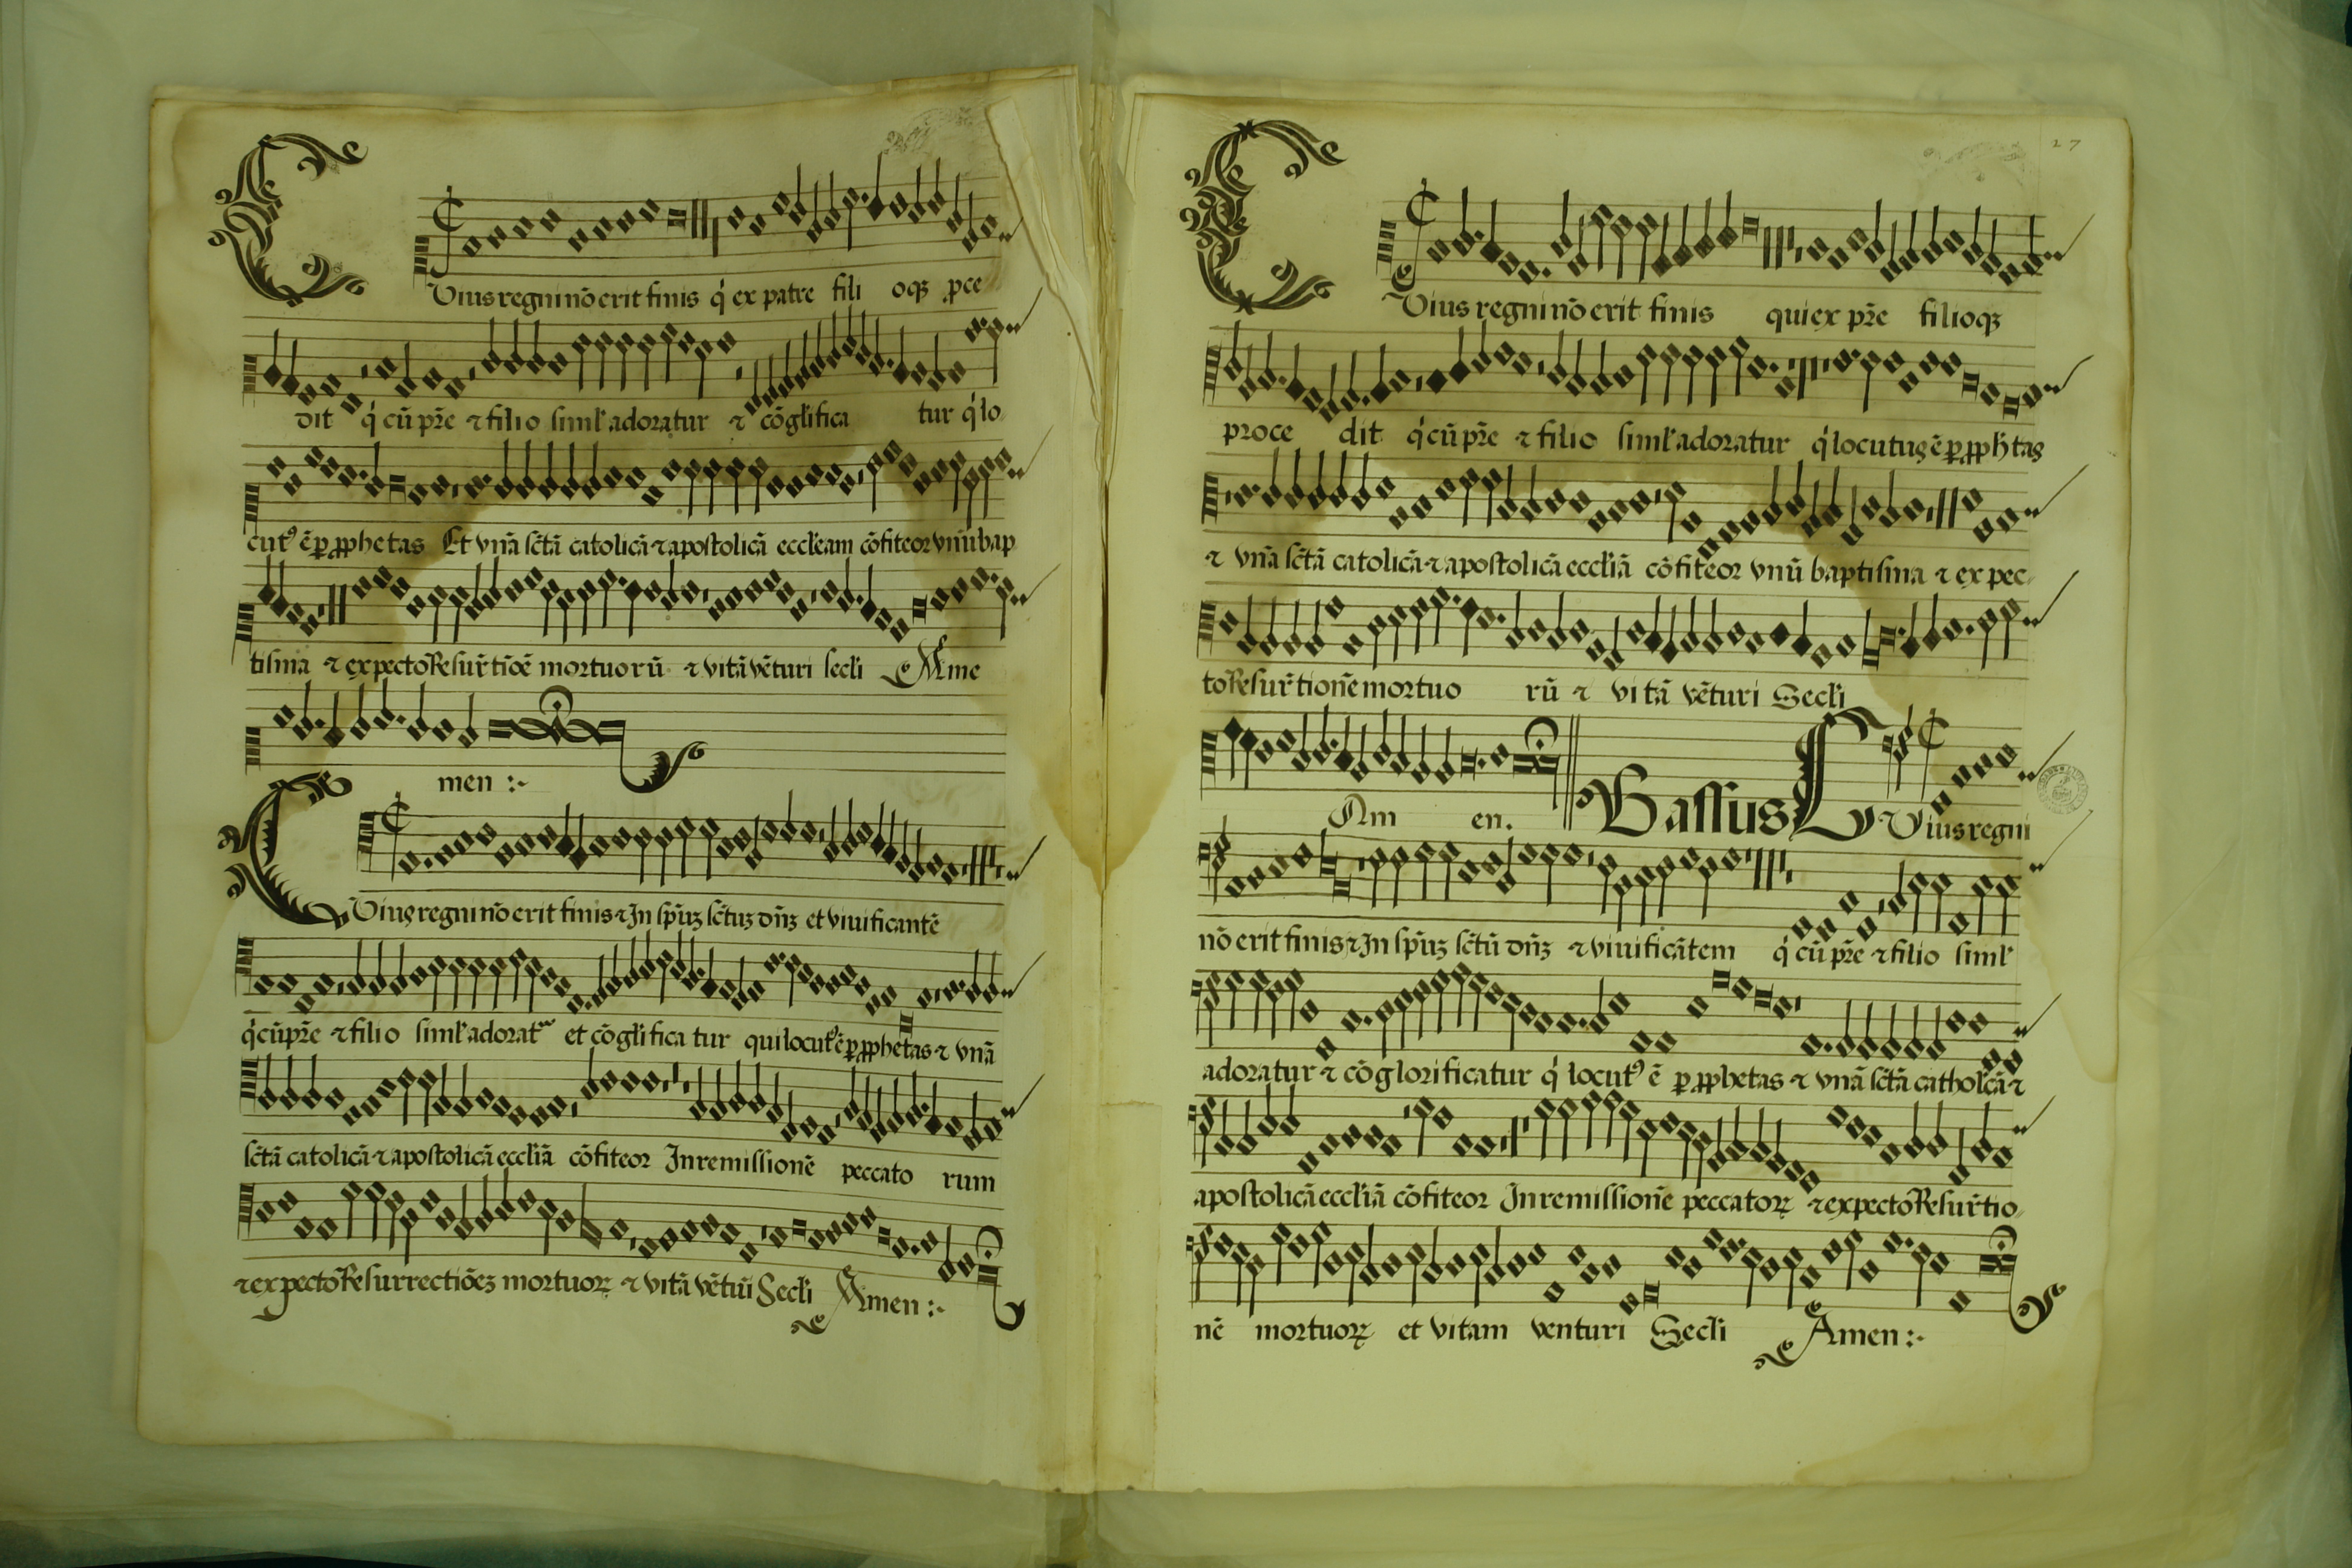 Cuius regni nō erit finis q́ ex patre fili oqꝫ ꝓce
dit q́ cū pr̄e ⁊ filio siml' adoratur ⁊ cōgl'ifica tur q́ lo
cutꝰ ē ꝑ ꝓphetas Et vnā sc̄tā catolicā ⁊ apostolicā eccl'eam cōfiteor vnū bap
tisma ⁊ expecto Resur̄tiōē mortuorū ⁊ vitā vēturi secl'i Ame
men :~
Cuius regni nō erit finis ⁊ In sp̄uꝫ sc̄tuꝫ dn̄ꝫ et viuificantē
q́ cū pr̄e ⁊ filio siml' adorat᷑ et cōgl'ifica tur qui locutꝰ ē ꝑ ꝓphetas ⁊ vnā
sc̄tā catolicā ⁊ apostolicā eccl'iā cōfiteor In remissionē peccato rum
⁊ expecto Resurrectiōeꝫ mortuoꝝ ⁊ vitā vētuī Secl'i Amen :~
27
Cuius regni nō erit finis qui ex pr̄e filioqꝫ
proce dit q́ cū pr̄e ⁊ filio siml' adoratur q́ locutus ē ꝑ ꝓph̄tas
⁊ vnā sc̄tā catolicā ⁊ apostolicā eccl'iā cōfiteor vnū baptisma ⁊ expec
to Resur̄tionē mortuo rū ⁊ vitā vēturi Secl'i
Am en. Bassus Cuius regni
nō erit finis ⁊ In sp̄uꝫ sc̄tū dn̄ꝫ ⁊ viuificātem q́ cū pr̄e ⁊ filio siml'
adoratur ⁊ cōglorificatur q́ locutꝰ ē ꝑ ꝓphetas ⁊ vnā sc̄tā cathol'cā ⁊
apostolicā eccl'iā cōfiteor In remissionē peccatoꝝ ⁊ expecto Resur̄tio
nē mortuoꝝ et vitam venturi Secl'i Amen :~